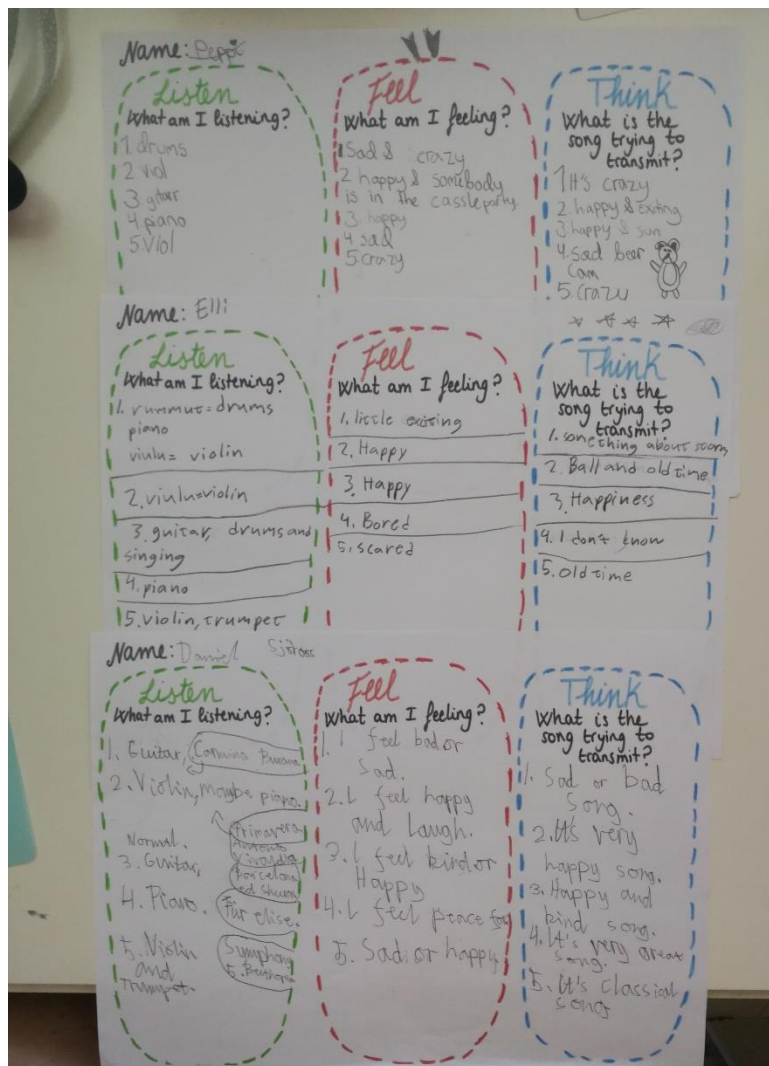 Name: Peppi
Listen
What am I listening?
1. drums
2 viol
3. gitarr
4. piano
5. Viol
Feel
What am I feeling?
1 Sad & crazy
2. happy & somebody
is in the cassleparty.
3. happy
4 sad
5. crazy
Think
What is the
song trying to
transmit?
1 It's crazy
2. happy & exiting
3. happy & sun
4. Sad beer
Cam
5. crazy
Name: Elli
Listen
What am I listening?
1. rummut = drums
piano
viulu = violin
2. viulu=violin
3. guitar, drums and
singing
4. piano
5. violin, trumpet
Feel
What am I feeling?
1. little exiting
2. Happy
3. Happy
4. Bored
5. scared
Think
What is the
song trying to
transmit?
1. something about storm
2. Ball and old time
3. Happiness
4. I don't know
5. Old time
Name: Daniel
Listen
What am I listening?
1. Guitar, Carmina Burana
2. Violin, maybe piano.
Primavera
Antonio
Vivaldi
Normal.
3. Guitar,
Barcelona
ed Sheeran
4. Piano.
Für elise.
5. Violin
and
Trumpet.
Symphony
5. Beethoven
Feel
What am I feeling?
1. I feel bad or
Sad.
2. I feel happy
and Laugh.
3. I feel kind or
Happy
4. I feel peace
5. Sad or happy.
Think
What is the
song trying to
transmit?
1. Sad or bad
song.
2. It's very
happy song.
3. Happy and
kind song.
4. It's very great
song.
5. It's classical
song